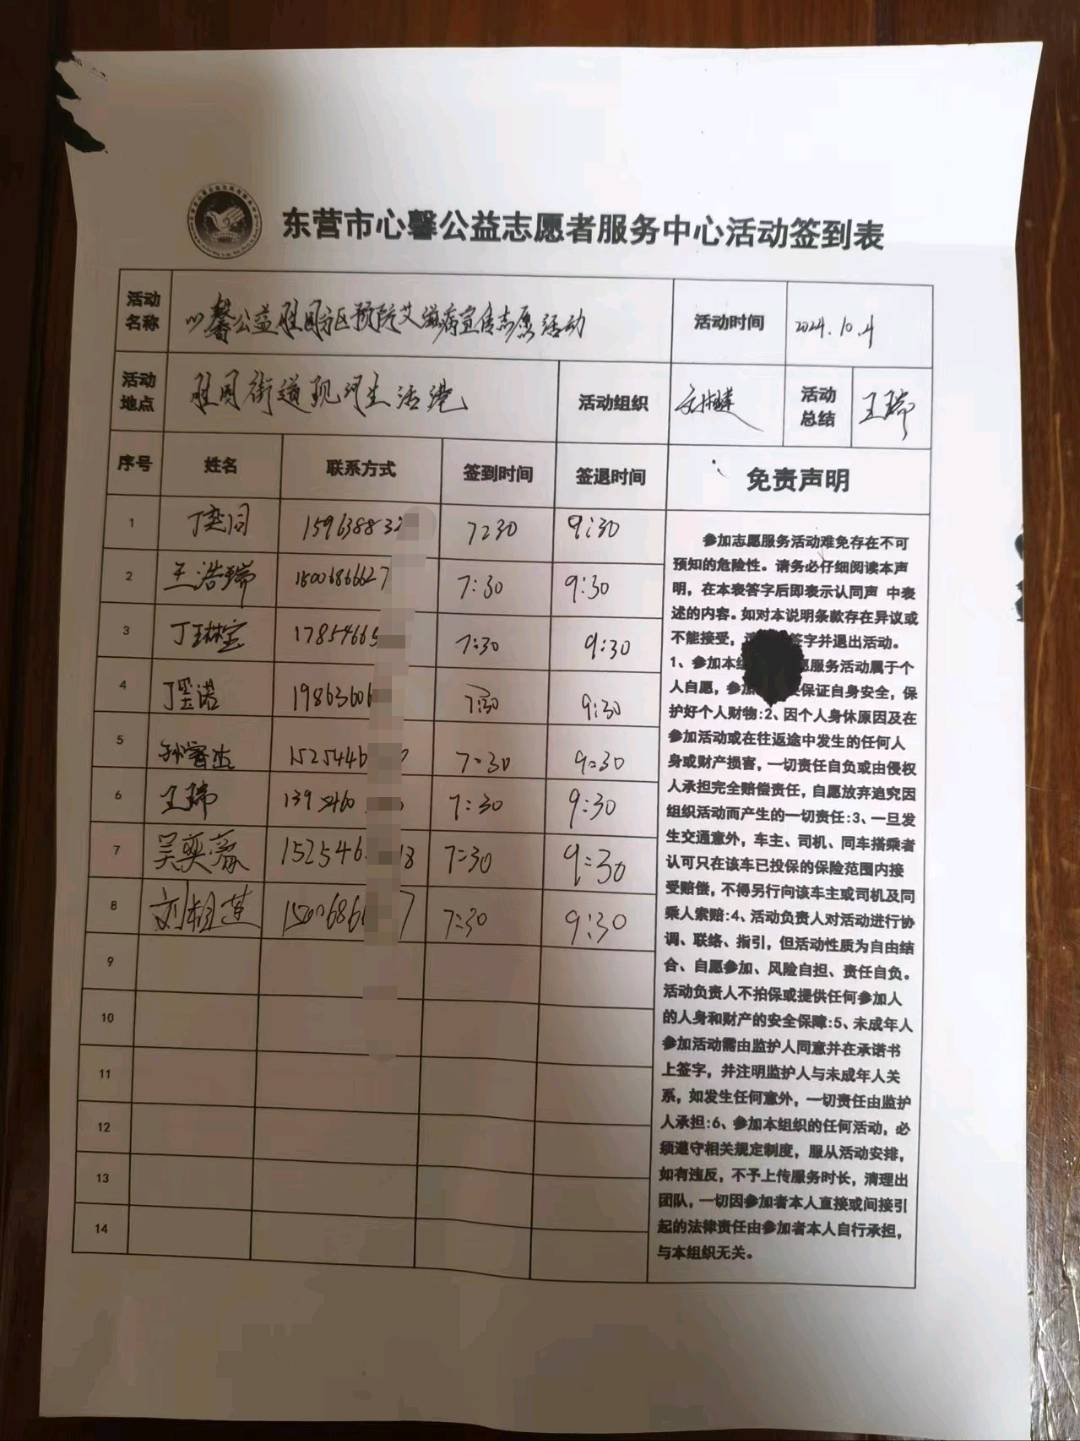 东营市心馨公益志愿者服务中心活动签到表
活动名称 心馨公益胜园市区预防艾滋病宣传志愿活动 活动时间 2024.10.4
活动地点 胜园街道现河生活港 活动组织 活动总结 王瑞
序号 姓名 联系方式 签到时间 签退时间 免责声明
1 丁奕同 159638832 7:30 9:30
2 王浩瑞 1500686627 7:30 9:30
3 丁琳宝 17854665 7:30 9:30
4 丁玺诺 19863606 7:30 9:30
5 1525446 7:30 9:30
6 王瑞 7:30 9:30
7 吴奕豪 152546 18 7:30 9:30
8 刘相莲 1500686 7 7:30 9:30
9
10
11
12
13
14
参加志愿服务活动难免存在不可
预知的危险性。请务必仔细阅读本声
明，在本表签字后即表示认同声 中表
述的内容。如对本说明条款存在异议或
不能接受，签字并退出活动。
1、参加本组 愿服务活动属于个
人自愿，参加 保证自身安全，保
护好个人财物:2、因个人身休原因及在
参加活动或在往返途中发生的任何人
身或财产损害，一切责任自负或由侵权
人承担完全赔偿责任，自愿放弃追究因
组织活动而产生的一切责任:3、一旦发
生交通意外，车主、司机、同车搭乘者
认可只在该车已投保的保险范围内接
受赔偿，不得另行向该车主或司机及同
乘人索赔:4、活动负责人对活动进行协
调、联络、指引，但活动性质为自由结
合、自愿参加、风险自担、责任自负。
活动负责人不拍保或提供任何参加人
的人身和财产的安全保障:5、未成年人
参加活动需由监护人同意并在承诺书
上签字，并注明监护人与未成年人关
系，如发生任何意外，一切责任由监护
人承担:6、参加本组织的任何活动，必
须遵守相关规定制度，服从活动安排，
如有违反，不予上传服务时长，清理出
团队，一切因参加者本人直接或间接引
起的法律责任由参加者本人自行承担，
与本组织无关。